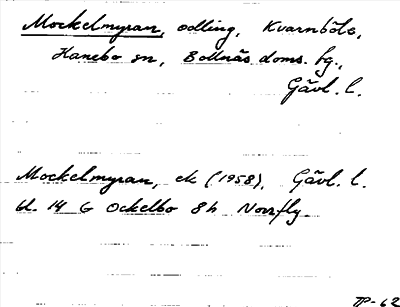 Mockelmyran, odling, Kvarnböle,
Hanebo sn, Bollnäs doms. fg.,
Gävl. l.
Mockelmyran, ek (1958), Gävl. l.
bl. 14 G Ockelbo 8h Norrfly.
TP-62